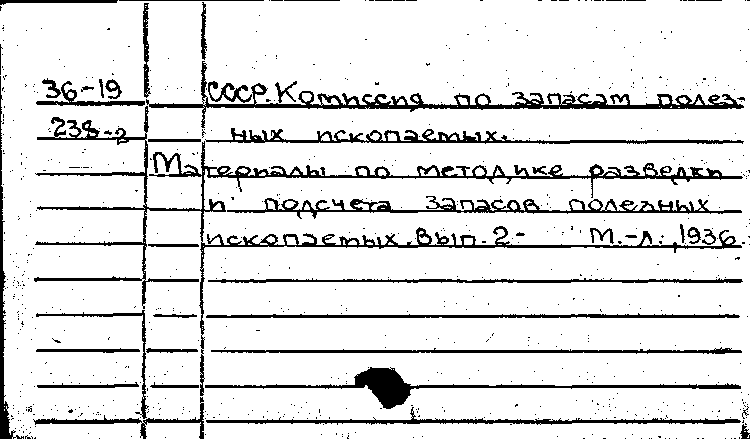 36-19 СССР. Комиссия по запасам полез-
238-2 ных ископаемых.
Материалы по методике разведки
и подсчета запасов полезных
ископаемых. Вып. 2- М.-Л., 1936.